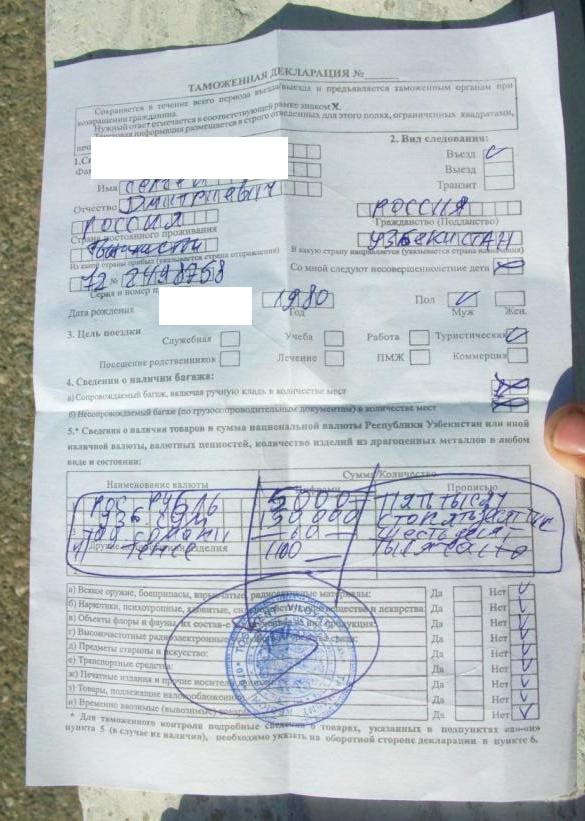 ТАМОЖЕННАЯ ДЕКЛАРАЦИЯ №
Сохраняется в течение всего периода въезда/выезда и предъявляется таможенным органам при
возвращении гражданина.
Нужный ответ отмечается в соответствующей рамке знаком X.
информация размещается в строго отведенных для этого полях, ограниченных квадратами,
2. Вид следования:
Въезд
Выезд
Транзит
Имя Сергей
Отчество Дмитриевич
РОССИЯ
Страна постоянного проживания
РОССИЯ
Гражданство (Подданство)
Из какой страны прибыл (указывается страна отправления)
УЗБЕКИСТАН
В какую страну направляется (указывается страна назначения)
72 № 2498758
Серия и номер
Со мной следуют несовершеннолетние дети
Дата рождения
1980
Год
Пол
Муж
Жен.
3. Цель поездки
Служебная
Учеба
Работа
Туристическая
Посещение родственников
Лечение
ПМЖ
Коммерция
4. Сведения о наличии багажа:
а) Сопровождаемый багаж, включая ручную кладь в количестве мест
б) Несопровождаемый багаж (по грузосопроводительным документам) в количестве мест
5.* Сведения о наличии товаров и сумма национальной валюты Республики Узбекистан или иной
наличной валюты, валютных ценностей, количество изделий из драгоценных металлов в любом
виде и состоянии:
Наименование валюты
Сумма/Количество
Цифрами
Прописью
РОС РУБЛЬ 5000 ПЯТЬ ТЫСЯЧ
УЗБ. СУМ 150000
60
1100
а) Всякое оружие, боеприпасы, взрывчатые, радиоактивные материалы: Да Нет
б) Наркотики, психотропные, ядовитые, вещества и лекарства: Да Нет
в) Объекты флоры и фауны, их продукция: Да Нет
г) Высокочастотные радиоэлектронные связи: Да Нет
д) Предметы старины и искусство: Да Нет
е) Транспортные средства: Да Нет
ж) Печатные издания и прочие носители Да Нет
з) Товары, подлежащие налогообложению Да Нет
и) Временно ввозимые (вывозимые) Да Нет
* Для таможенного контроля подробные сведения о товарах, указанных в подпунктах «а»-«и»
пункта 5 (в случае их наличия), необходимо указать на оборотной стороне декларации в пункте 6.